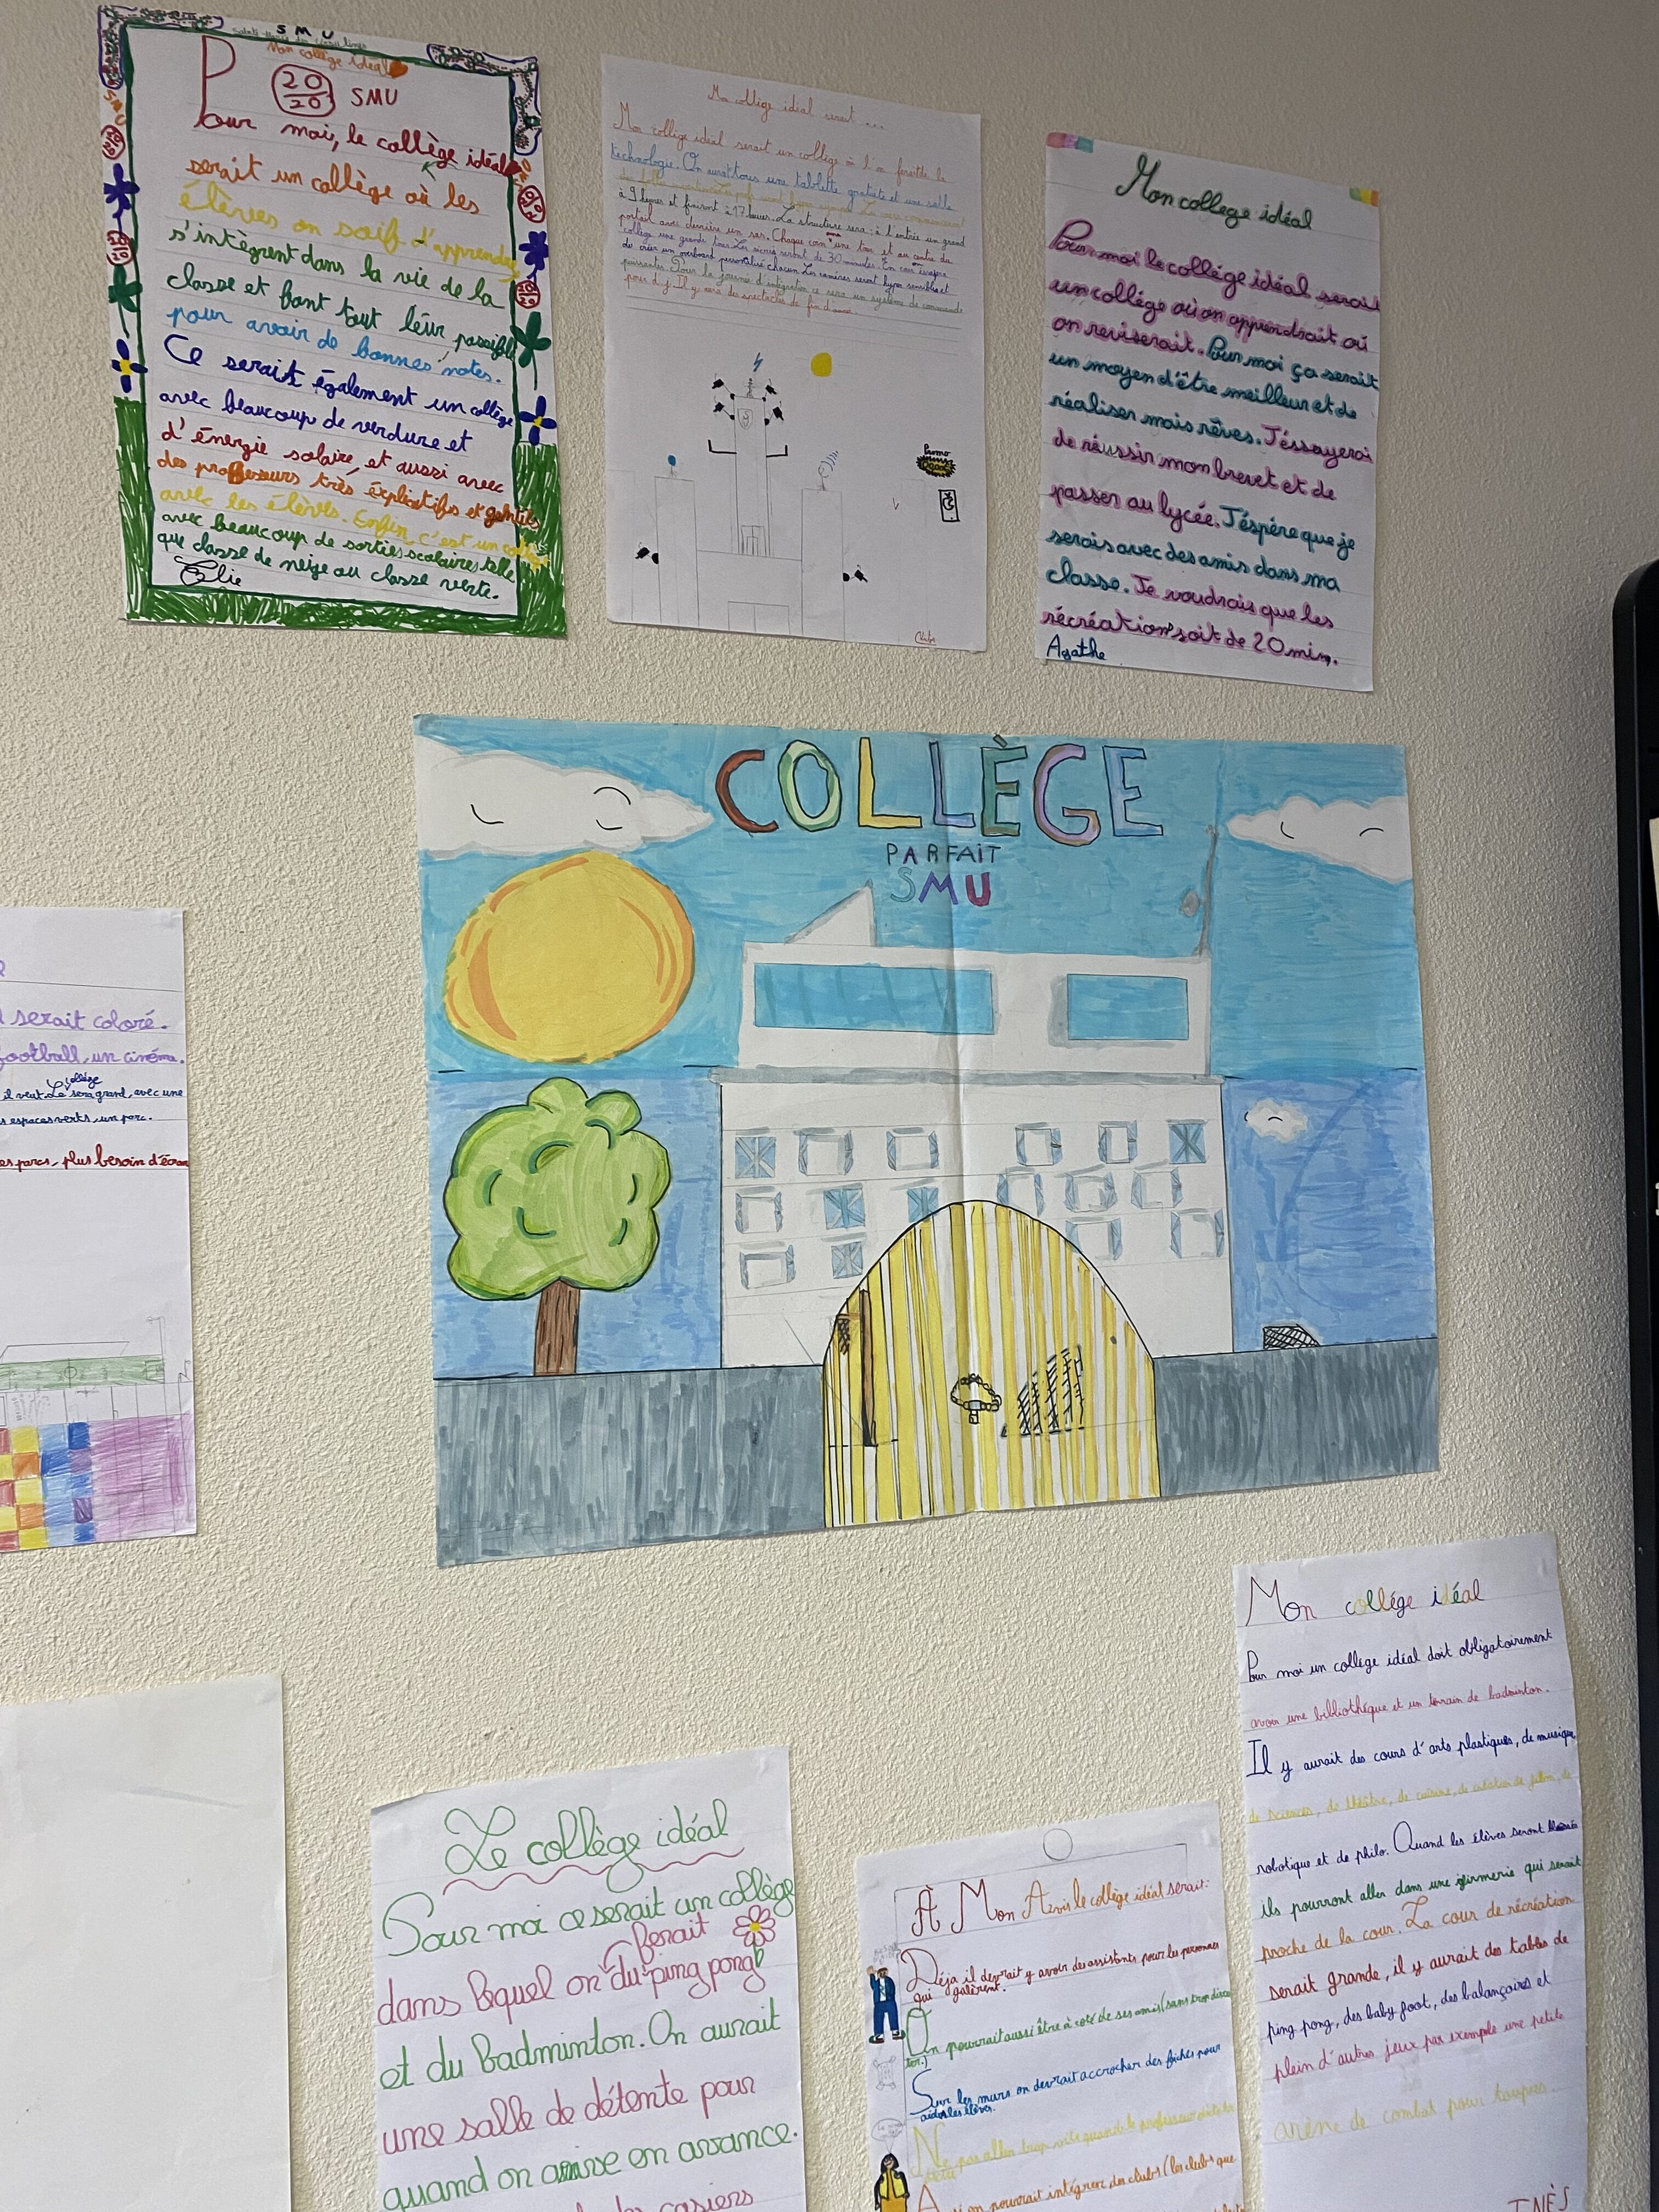 SMU
Mon collège idéal
20
20
SMU
Pour moi, le collège idéal
serait un collège où les
élèves on soif d'apprendre
s'intègrent dans la vie de la
classe et font tout leur possible
pour avoir de bonnes notes.
Ce serait également un collège
avec beaucoup de verdure et
d'énergie solaire, et aussi avec
des professeurs très éxplicatifs et gentils
avec les élèves. Enfin c'est un
avec beaucoup de sorties scolaires telle
que classe de neige ou classe verte.
Elie
Mon collège idéal serait ...
Mon collège idéal serait un collège à la
technologie. On aurait tous une tablette gratuite et une salle
à 9 heures et finiront à 17 heures. La structure sera : à l'entrée un grand
portail avec derrière un sas. Chaque coin une tour et au centre du
collège une grande tour. Les récrés seront de 30 minutes. En cour
de créer un overboard personalisé chacun. Les caméras seront hyper sensibles et
puissantes. Pour la journée d'intégration ce sera un système de commande
pour d.j. Il y aura des spectacles de fin d'année.
Promo
Mon college idéal
Pour moi le collége idéal serait
un collége où on apprendrait où
on reviserait. Pour moi ça serait
un moyen d'être meilleur et de
réaliser mais rêves. J'éssayerai
de réussir mon brevet et de
passer au lycée. J'éspère que je
serais avec des amis dans ma
classe. Je voudrais que les
récréations soit de 20 min.
Agathe
COLLÈGE
PARFAIT
SMU
serait coloré.
football, un cinéma.
collège
il veut. Le sera grand, avec une
espaces verts, un parc.
es parcs, plus besoin d'écran
Mon collége idéal
Pour moi un collège idéal doit obligatoirement
avoir une bibliothèque et un terrain de badminton.
Il y aurait des cours d'arts plastiques, de musique,
de sciences, de théâtre, de cuisine, de création de film, de
robotique et de philo. Quand les élèves seront blessés
ils pourront aller dans une infirmerie qui serait
proche de la cour. La cour de récréation
serait grande, il y aurait des tables de
ping pong, des baby foot, des balançoires et
plein d'autres jeux par exemple une petite
arène de combat pour toupies...
INÈS
Le collège idéal
Pour moi ce serait un collège
ferait
dans lequel on du ping pong
et du Badminton. On aurait
une salle de détente pour
quand on arrive en avance.
casiers
À Mon Avis le collège idéal serait:
Déja il devrait y avoir des assistants pour les personnes
qui galèrent.
On pourrait aussi être à coté de ses amis (sans trop discu
ter.)
Sur les murs on devrait accrocher des fiches pour
aider les élèves.
Ne pas aller trop vite quand le professeur
on pourrait intégrer des clubs (les clubs que